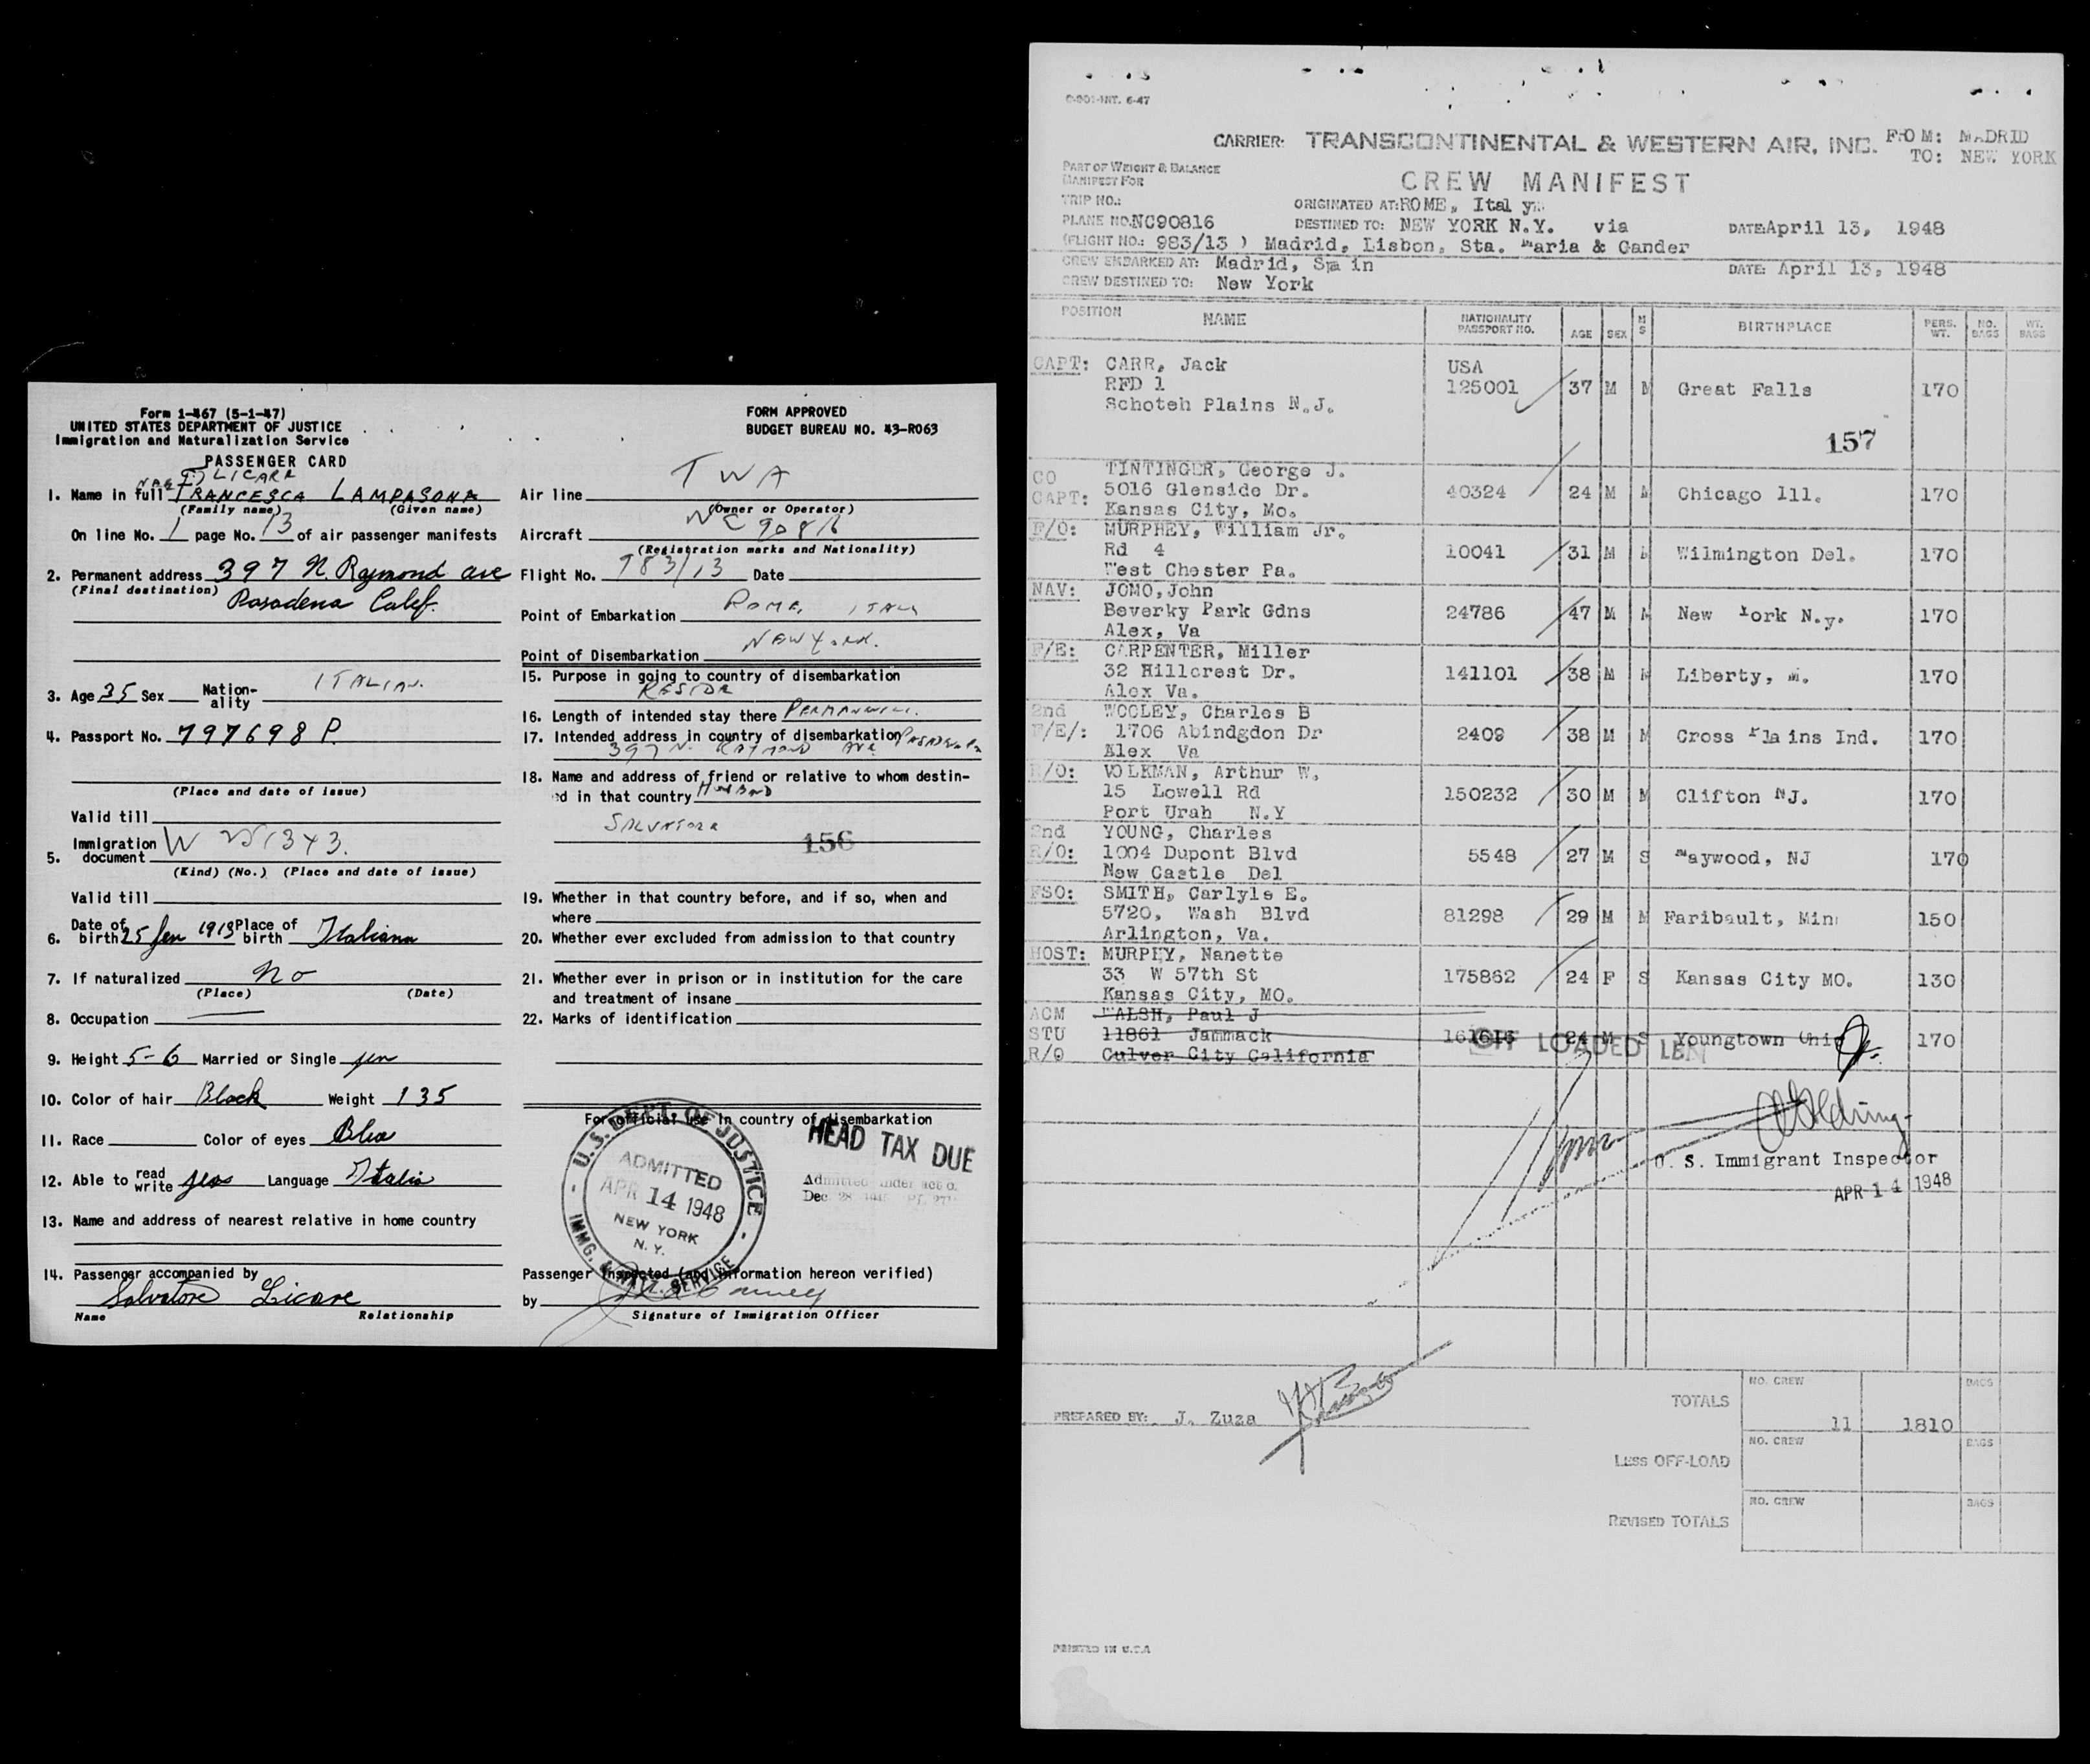 Form 1-467 (5-1-47)
UNITED STATES DEPARTMENT OF JUSTICE
Immigration and Naturalization Service
PASSENGER CARD
FORM APPROVED
BUDGET BUREAU NO. 43-R063
LICARE
1. Name in full FRANCESCA LAMPASONA
(Family name) (Given name)
On line No. 1 page No. 13 of air passenger manifests
2. Permanent address 397 N. Raymond ave
(Final destination) Pasadena Calef.
3. Age 35 Sex Nation-ality ITALIAN.
4. Passport No. 797698 P.
(Place and date of issue)
Valid till
5. Immigration document W
(Kind) (No.) (Place and date of issue)
Valid till
6. Date of birth 25 Jen 1913 Place of birth Italiana
7. If naturalized No
(Place) (Date)
8. Occupation
9. Height 5-6 Married or Single
10. Color of hair Black Weight 135
11. Race Color of eyes Blea
12. Able to read write yes Language Italia
13. Name and address of nearest relative in home country
14. Passenger accompanied by
Salvatore Licare
Name Relationship
Air line TWA
(Owner or Operator)
Aircraft NC 90816
(Registration marks and Nationality)
Flight No. 983/13 Date
Point of Embarkation ROME, ITALY
Point of Disembarkation NEW YORK.
15. Purpose in going to country of disembarkation
RESIDE
16. Length of intended stay there
17. Intended address in country of disembarkation
397 N. RAYMOND AVE PASADENA
18. Name and address of friend or relative to whom destin-
ed in that country HUSBAND
SALVATORE
156
19. Whether in that country before, and if so, when and
where
20. Whether ever excluded from admission to that country
21. Whether ever in prison or in institution for the care
and treatment of insane
22. Marks of identification
For official use in country of disembarkation
HEAD TAX DUE
Admitted under act o.
Dec. 28
U.S. DEPT. OF JUSTICE
ADMITTED
APR 14 1948
NEW YORK
N. Y.
IMMG. & NATZ. SERVICE
Passenger Inspected (and information hereon verified)
by
Signature of Immigration Officer
C-901-INT. 6-47
CARRIER: TRANSCONTINENTAL & WESTERN AIR, INC. FROM: MADRID
TO: NEW YORK
PART OF WEIGHT & BALANCE
MANIFEST FOR
CREW MANIFEST
TRIP NO.:
ORIGINATED AT: ROME, Ital y
PLANE NO. NC90816 DESTINED TO: NEW YORK N.Y. via DATE: April 13, 1948
(FLIGHT NO.: 983/13 ) Madrid, Lisbon, Sta. Maria & Gander
CREW EMBARKED AT: Madrid, Spa in DATE: April 13, 1948
CREW DESTINED TO: New York
POSITION NAME NATIONALITY PASSPORT NO. AGE SEX M S BIRTHPLACE PERS. WT. NO. BAGS WT. BAGS
CAPT: CARR, Jack USA
RFD 1 125001 37 M M Great Falls 170
Schoteh Plains N.J.
157
CO TINTINGER, George J.
CAPT: 5016 Glenside Dr. 40324 24 M M Chicago 111. 170
Kansas City, Mo.
F/O: MURPHEY, William Jr.
Rd 4 10041 31 M M Wilmington Del. 170
West Chester Pa.
NAV: JOMO,John
Beverky Park Gdns 24786 47 M M New York N.y. 170
Alex, Va
F/E: CARPENTER, Miller
32 Hillcrest Dr. 141101 38 M M Liberty, M. 170
Alex Va.
2nd WOOLEY, Charles B
F/E/: 1706 Abindgdon Dr 2409 38 M M Cross Pla ins Ind. 170
Alex Va
R/O: VOLKMAN, Arthur W.
15 Lowell Rd 150232 30 M M Clifton NJ. 170
Port Urah N.Y
2nd YOUNG, Charles
R/O: 1004 Dupont Blvd 5548 27 M S Maywood, NJ 170
New Castle Del
FSO: SMITH, Carlyle E.
5720, Wash Blvd 81298 29 M M Faribault, Min 150
Arlington, Va.
HOST: MURPHY, Nanette
33 W 57th St 175862 24 F S Kansas City MO. 130
Kansas City, MO.
ACM WALSH, Paul J
STU 11861 Jammack 161616 24 M S Youngtown Ohio 170
R/O Culver City California
OFF LOADED LBN
U. S. Immigrant Inspector
APR 14 1948
PREPARED BY: J. Zuza
TOTALS NO. CREW 11 1810 BAGS
LESS OFF-LOAD NO. CREW BAGS
REVISED TOTALS NO. CREW BAGS
PRINTED IN U.S.A